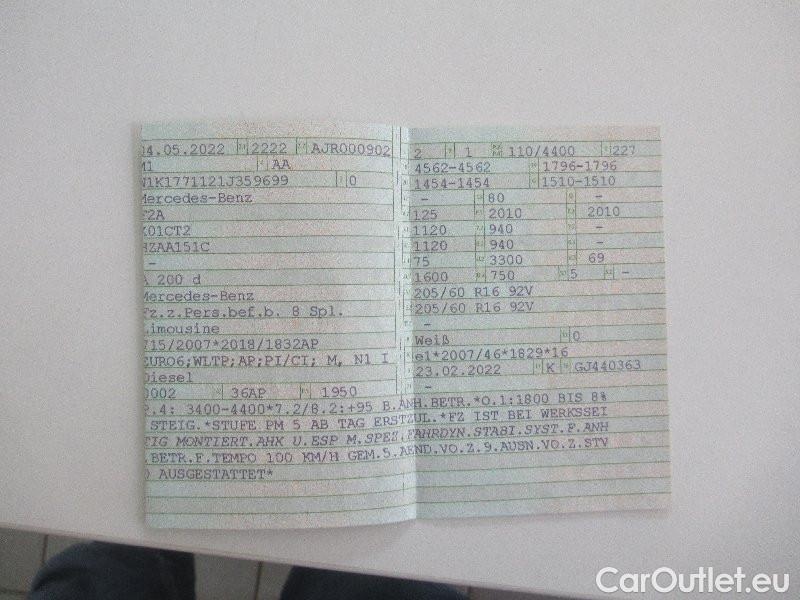 04.05.2022 2222 AJR000902
M1 AA
W1K1771121J359699 0
Mercedes-Benz
F2A
K01CT2
HZAA151C
-
A 200 d
Mercedes-Benz
Fz.z.Pers.bef.b. 8 Spl.
Limousine
715/2007*2018/1832AP
EURO6;WLTP;AP;PI/CI; M, N1 I
Diesel
0002 36AP 1950
2 1 110/4400 227
4562-4562 1796-1796
1454-1454 1510-1510
- 80 -
125 2010 2010
1120 940 -
1120 940 -
75 3300 69
1600 750 5 -
205/60 R16 92V
205/60 R16 92V
-
Weiß 0
e1*2007/46*1829*16
23.02.2022 K GJ440363
-
P.4: 3400-4400*7.2/8.2:+95 B.ANH.BETR.*O.1:1800 BIS 8%
STEIG.*STUFE PM 5 AB TAG ERSTZUL.*FZ IST BEI WERKSSEI
TIG MONTIERT.AHK U.ESP M.SPEZ.FAHRDYN.STABI.SYST.F.ANH
.BETR.F.TEMPO 100 KM/H GEM.5.AEND.VO.Z.9.AUSN.VO.Z.STV
O AUSGESTATTET*
CarOutlet.eu